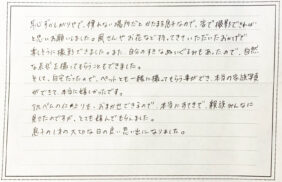 思うし、慣れない場所だとかたまる息子なので、家で撮影できればん
と思いお願いしました。奥さんやお花など持ってきていただいたおかげで
楽しそうに撮影できました。また、自分のすきなぬいぐるみもあったので、自然
な表情を撮ってもらうこともできました。
そして、自宅だったので、ペットとも一緒に撮ってもらう事ができ、本当の家族写真
ができて、本当に嬉しかったです。
アルバムの仕上がりも、おまかせできるので、本当にすてきで、親族みんなに
見せたのですが、とても喜んでもらえました。
息子の1才の大切な日の良い思い出になりました。